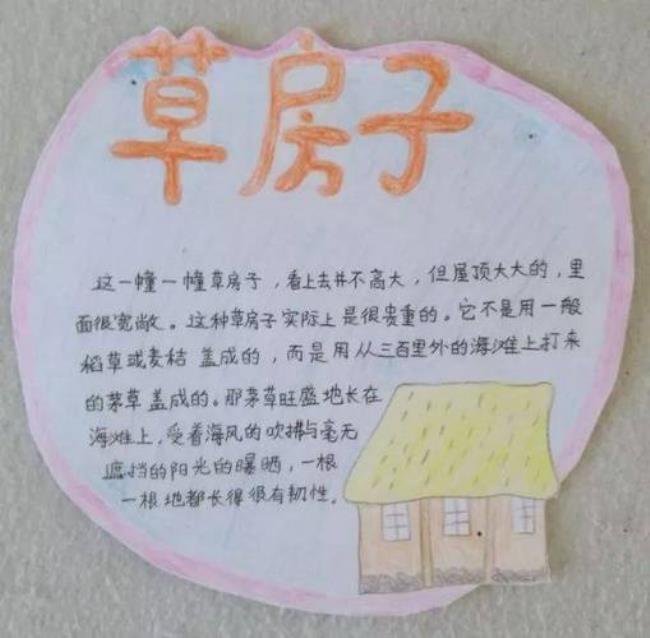 草房子
这一幢一幢草房子，看上去并不高大，但屋顶大大的，里
面很宽敞。这种草房子实际上是很贵重的。它不是用一般
稻草或麦秸盖成的，而是用从三百里外的海滩上打来
的茅草盖成的。那茅草旺盛地长在
海滩上，受着海风的吹拂与毫无
遮挡的阳光的曝晒，一根
一根地都长得很有韧性。